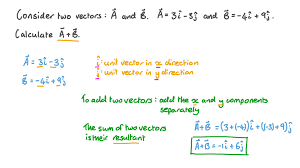 Consider two vectors: A⃗ and B⃗. A⃗ = 3î - 3ĵ and B⃗ = -4î + 9ĵ.
Calculate A⃗ + B⃗.
A⃗ = 3î - 3ĵ
B⃗ = -4î + 9ĵ
î: unit vector in x direction
ĵ: unit vector in y direction
To add two vectors: add the x and y components
separately
The sum of two vectors
is their resultant
A⃗+B⃗ = (3+(-4))î + ((-3)+9)ĵ
A⃗+B⃗ = -1î + 6ĵ